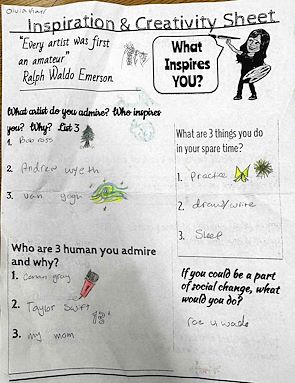 Inspiration & Creativity Sheet
"Every artist was first
an amateur"
Ralph Waldo Emerson
What
Inspires
YOU?
What artist do you admire? Who inspires
you? Why? List 3
1. Bob ross
2. Andrew wyeth
3. van gogh
What are 3 things you do
in your spare time?
1. Practice
2. draw/write
3. Sleep
Who are 3 human you admire
and why?
1. Conan gray
2. Taylor Swift
3. my mom
If you could be a part
of social change, what
would you do?
roe v wade